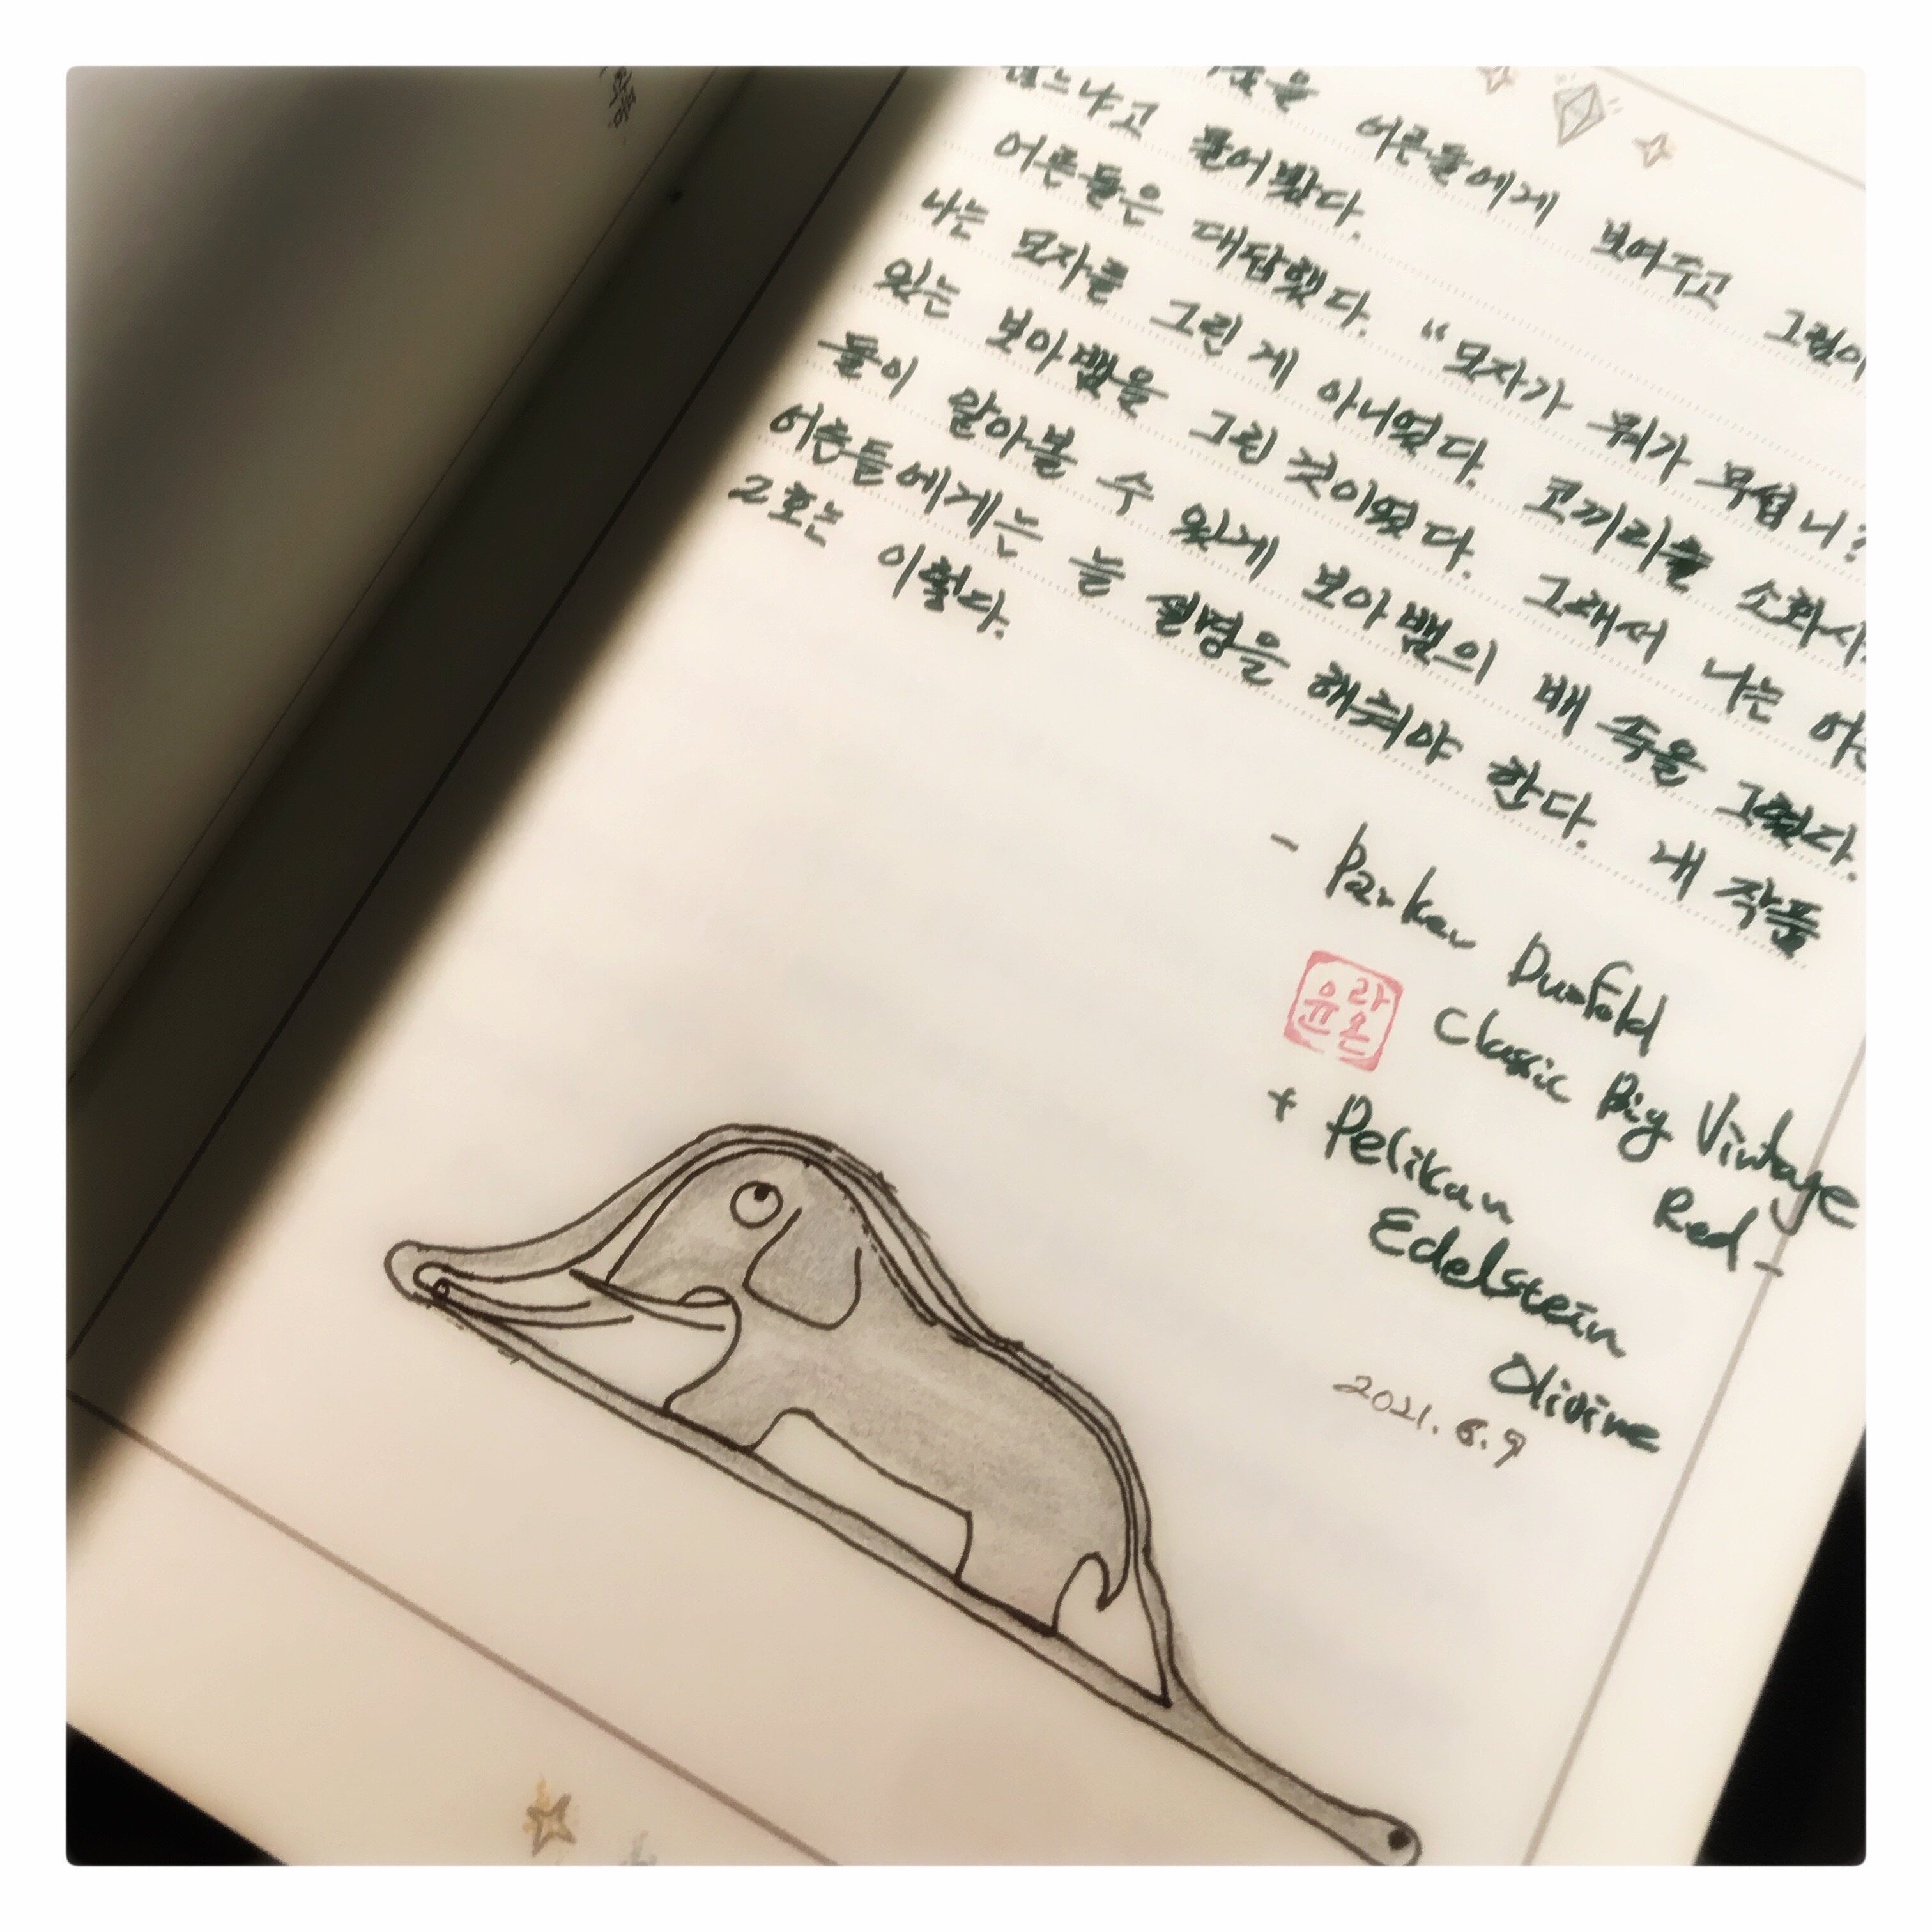 어른들에게 보여주고 그림이
않느냐고 물어봤다.
어른들은 대답했다. "모자가 뭐가 무섭니?
나는 모자를 그린 게 아니었다. 코끼리를 소화시
있는 보아뱀을 그린 것이었다. 그래서 나는 어른
들이 알아볼 수 있게 보아뱀의 배 속을 그렸다.
어른들에게는 늘 설명을 해줘야 한다. 내 작품
2호는 이렇다.
- Parker Duofold
Classic Big Vintage
Red -
+ Pelikan
Edelstein
Olivine
2021. 6. 9
윤라온